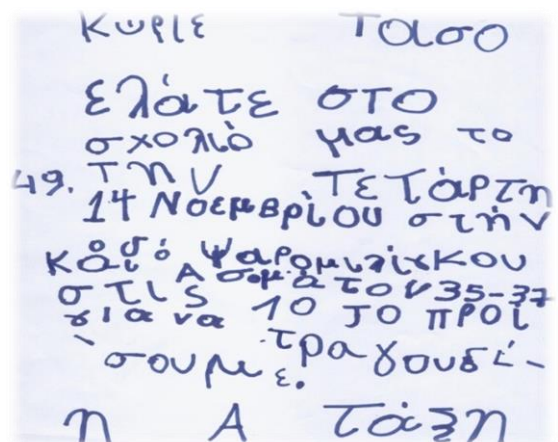 Κύριε Τάσο
ελάτε στο
σχολιό μας το
49. την Τετάρτη
14 Νοεμβρίου στήν
οδό Ψαρομιλίγκου
και Ασομάτον 35-37
στις 10 το προί
για να
τραγουδί-
σουμε.
η Α τάξη